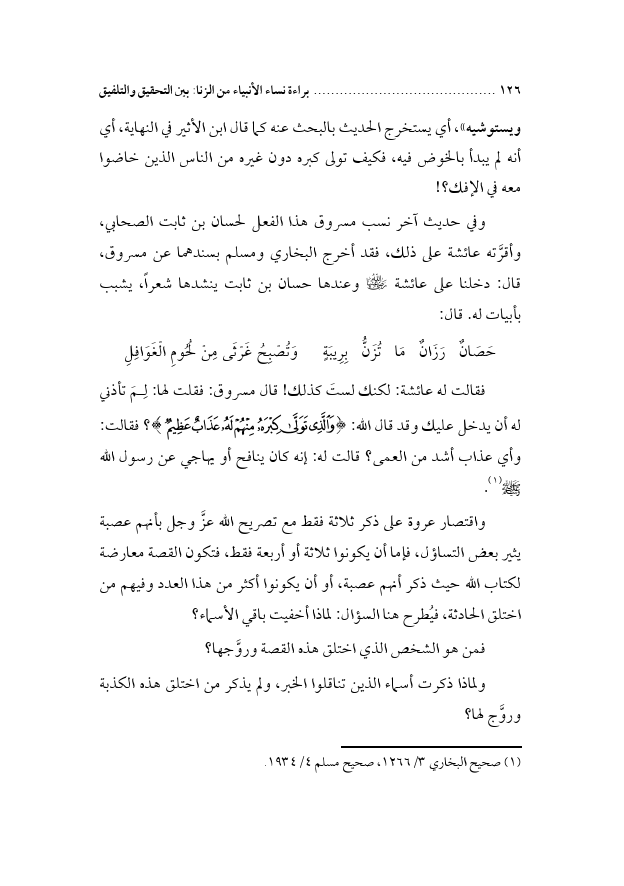 ١٢٦ .......................................... براءة نساء الأنبياء من الزنا: بين التحقيق والتلفيق
ويستوشيه»، أي يستخرج الحديث بالبحث عنه كما قال ابن الأثير في النهاية، أي
أنه لم يبدأ بالخوض فيه، فكيف تولى كبره دون غيره من الناس الذين خاضوا
معه في الإفك؟!
وفي حديث آخر نسب مسروق هذا الفعل لحسان بن ثابت الصحابي،
وأقرَّته عائشة على ذلك، فقد أخرج البخاري ومسلم بسندهما عن مسروق،
قال: دخلنا على عائشة وعندها حسان بن ثابت ينشدها شعراً، يشبب
بأبيات له. قال:
حَصَانٌ رَزَانٌ مَا تُزَنُّ بِرِيبَةٍ وَتُصْبِحُ غَرْثَى مِنْ لُحُومِ الْغَوَافِلِ
فقالت له عائشة: لكنك لستَ كذلك! قال مسروق: فقلت لها: لِـمَ تأذني
له أن يدخل عليك وقد قال الله: ﴿وَالَّذِي تَوَلَّىٰ كِبْرَهُ مِنْهُمْ لَهُ عَذَابٌ عَظِيمٌ﴾؟ فقالت:
وأي عذاب أشد من العمى؟ قالت له: إنه كان ينافح أو يهاجي عن رسول الله
ﷺ(١).
واقتصار عروة على ذكر ثلاثة فقط مع تصريح الله عزَّ وجل بأنهم عصبة
يثير بعض التساؤل، فإما أن يكونوا ثلاثة أو أربعة فقط، فتكون القصة معارضة
لكتاب الله حيث ذكر أنهم عصبة، أو أن يكونوا أكثر من هذا العدد وفيهم من
اختلق الحادثة، فيُطرح هنا السؤال: لماذا أخفيت باقي الأسماء؟
فمن هو الشخص الذي اختلق هذه القصة وروَّجها؟
ولماذا ذكرت أسماء الذين تناقلوا الخبر، ولم يذكر من اختلق هذه الكذبة
وروَّج لها؟
(١) صحيح البخاري ٣/ ١٢٦٦، صحيح مسلم ٤/ ١٩٣٤.